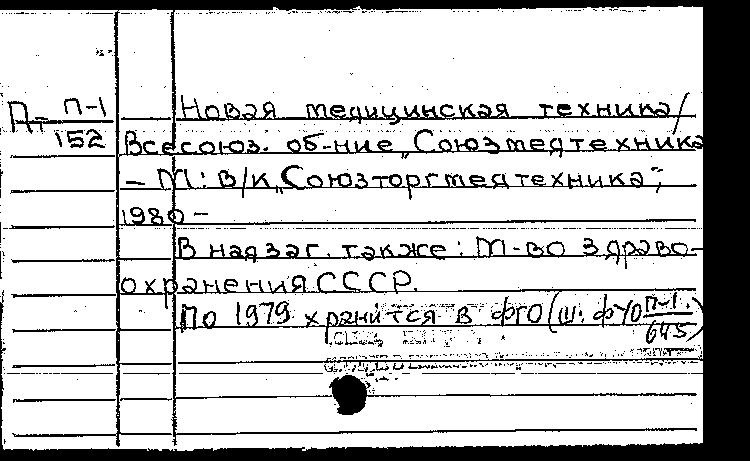 П-1
Пт 152
Новая медицинская техника/
Всесоюз. об-ние „Союзмедтехника
– М: В/К „Союзторгмедтехника",
1980 –
В надзаг. также: М-во здраво-
охранения СССР.
По 1979 хранится в ФГО (Ш: ФУО П-1
645)